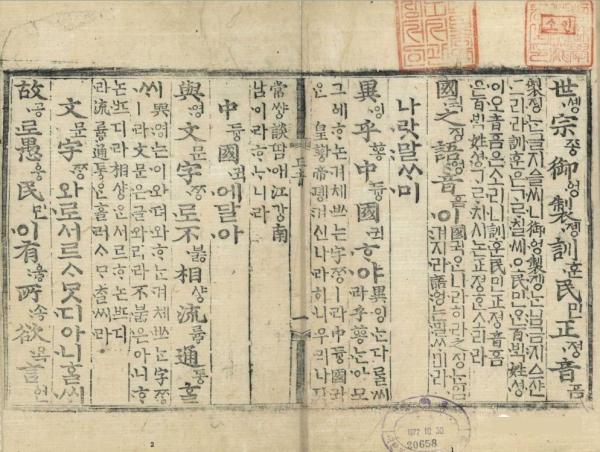 世솅宗종御엉製졩訓훈民민正졍音ᅙᅳᆷ
製졩는글지슬씨니御엉製졩는님금지스샨
그리라訓훈은ᄀᆞᄅᆞ칠씨오民민은百ᄇᆡᆨ姓셩
이오音ᅙᅳᆷ은소리니訓훈民민正졍音ᅙᅳᆷ
은百ᄇᆡᆨ姓셩ᄀᆞᄅᆞ치시논正졍ᄒᆞᆫ소리라
國귁之징語엉音ᅙᅳᆷ이國귁ᄋᆞᆫ나라히라之징는입
겨지라語엉는말ᄊᆞ미라
나랏말ᄊᆞ미
異잉乎ᅘᅩᆼ中듕國귁ᄒᆞ야異잉는다ᄅᆞᆯ씨
라乎ᅘᅩᆼ는아모
그ᅌᅦᄒᆞ논겨체ᄡᅳ는字ᄍᆞᆼㅣ라中듕國귁
ᄋᆞᆫ皇황帝뎽겨신나라히니우리나랏
正音
一
常썅談땀애江강南
남이라ᄒᆞᄂᆞ니라
中듕國귁에달아
與영文문字ᄍᆞᆼ로不붏相샹流륳通통ᄒᆞᆯ
ᄊᆡ與영는이와뎌와ᄒᆞ는겨체ᄡᅳ는字ᄍᆞᆼ
ㅣ라文문은글와리라不붏은아니ᄒᆞ
논ᄠᅳ디라相샹ᄋᆞᆫ서르ᄒᆞ논ᄠᅳ디
라流륳通통은흘러ᄉᆞᄆᆞᄎᆞᆯ씨라
文문字ᄍᆞᆼ와로서르ᄉᆞᄆᆞᆺ디아니ᄒᆞᆯᄊᆡ
故공로愚웅民민이有ᅌᅮᇢ所송欲욕言언
소인
1972.10.30
20658
2